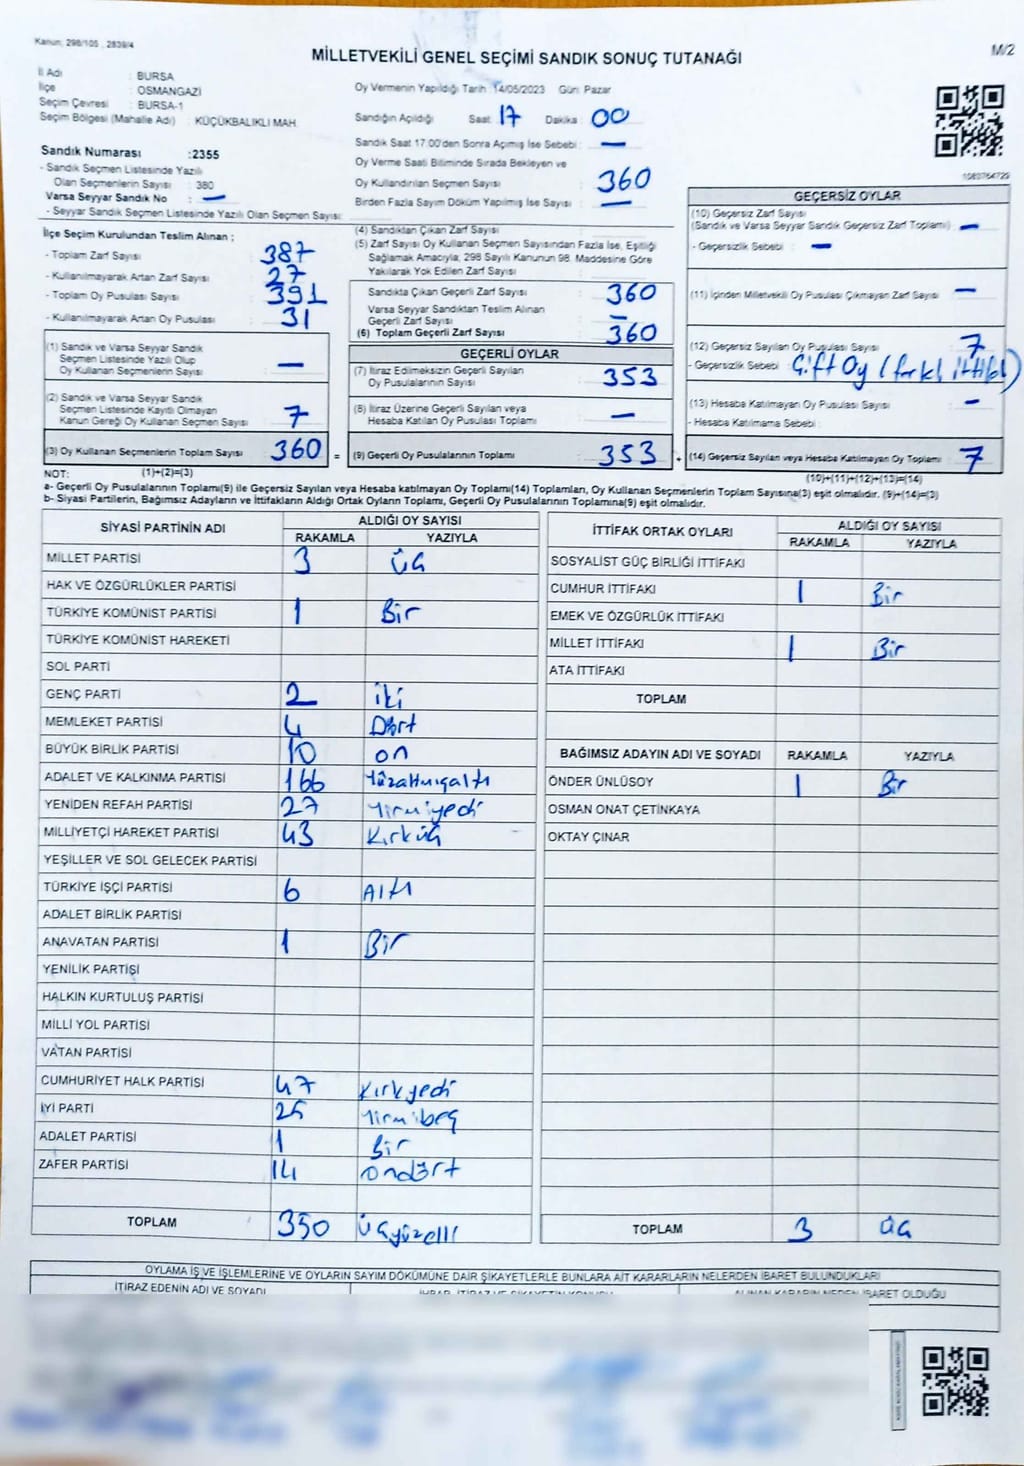 Kanun; 298/105 , 2839/4
MİLLETVEKİLİ GENEL SEÇİMİ SANDIK SONUÇ TUTANAĞI
M/2
İl Adı : BURSA
İlçe : OSMANGAZİ
Seçim Çevresi : BURSA-1
Seçim Bölgesi (Mahalle Adı) : KÜÇÜKBALIKLI MAH.
Sandık Numarası :2355
- Sandık Seçmen Listesinde Yazılı
Olan Seçmenlerin Sayısı : 380
Varsa Seyyar Sandık No : —
- Seyyar Sandık Seçmen Listesinde Yazılı Olan Seçmen Sayısı:
Oy Vermenin Yapıldığı Tarih :14/05/2023 Gün: Pazar
Sandığın Açıldığı Saat: 17 Dakika : 00
Sandık Saat 17.00'den Sonra Açımış İse Sebebi : —
Oy Verme Saati Bitiminde Sırada Bekleyen ve
Oy Kullandırılan Seçmen Sayısı : 360
Birden Fazla Sayım Döküm Yapılmış İse Sayısı : —
İlçe Seçim Kurulundan Teslim Alınan ;
- Toplam Zarf Sayısı : 387
- Kullanılmayarak Artan Zarf Sayısı : 27
- Toplam Oy Pusulası Sayısı : 391
- Kullanılmayarak Artan Oy Pusulası : 31
(1) Sandık ve Varsa Seyyar Sandık
Seçmen Listesinde Yazılı Olup
Oy Kullanan Seçmenlerin Sayısı : —
(2) Sandık ve Varsa Seyyar Sandık
Seçmen Listesinde Kayıtlı Olmayan
Kanun Gereği Oy Kullanan Seçmen Sayısı : 7
(3) Oy Kullanan Seçmenlerin Toplam Sayısı 360 =
(1)+(2)=(3)
(4) Sandıktan Çıkan Zarf Sayısı :
(5) Zarf Sayısı Oy Kullanan Seçmen Sayısından Fazla İse, Eşitliği
Sağlamak Amacıyla, 298 Sayılı Kanunun 98. Maddesine Göre
Yakılarak Yok Edilen Zarf Sayısı :
Sandıkta Çıkan Geçerli Zarf Sayısı : 360
Varsa Seyyar Sandıktan Teslim Alınan
Geçerli Zarf Sayısı : —
(6) Toplam Geçerli Zarf Sayısı : 360
GEÇERLİ OYLAR
(7) İtiraz Edilmeksizin Geçerli Sayılan
Oy Pusulalarının Sayısı : 353
(8) İtiraz Üzerine Geçerli Sayılan veya
Hesaba Katılan Oy Pusulası Toplamı : —
(9) Geçerli Oy Pusulalarının Toplamı : 353 +
1080764729
GEÇERSİZ OYLAR
(10) Geçersiz Zarf Sayısı
(Sandık ve Varsa Seyyar Sandık Geçersiz Zarf Toplamı) : —
- Geçersizlik Sebebi : —
(11) İçinden Milletvekili Oy Pusulası Çıkmayan Zarf Sayısı : —
(12) Geçersiz Sayılan Oy Pusulası Sayısı : 7
- Geçersizlik Sebebi : Çift Oy (farklı ittifak)
(13) Hesaba Katılmayan Oy Pusulası Sayısı : —
- Hesaba Katılmama Sebebi :
(14) Geçersiz Sayılan veya Hesaba Katılmayan Oy Toplamı : 7
(10)+(11)+(12)+(13)=(14)
NOT:
a- Geçerli Oy Pusulalarının Toplamı(9) ile Geçersiz Sayılan veya Hesaba katılmayan Oy Toplamı(14) Toplamları, Oy Kullanan Seçmenlerin Toplam Sayısına(3) eşit olmalıdır. (9)+(14)=(3)
b- Siyasi Partilerin, Bağımsız Adayların ve İttifakların Aldığı Ortak Oyların Toplamı, Geçerli Oy Pusulalarının Toplamına(9) eşit olmalıdır.
SİYASİ PARTİNİN ADI ALDIĞI OY SAYISI
RAKAMLA YAZIYLA
MİLLET PARTİSİ 3 üç
HAK VE ÖZGÜRLÜKLER PARTİSİ
TÜRKİYE KOMÜNİST PARTİSİ 1 Bir
TÜRKİYE KOMÜNİST HAREKETİ
SOL PARTİ
GENÇ PARTİ 2 iki
MEMLEKET PARTİSİ 4 Dört
BÜYÜK BİRLİK PARTİSİ 10 on
ADALET VE KALKINMA PARTİSİ 166 Yüzaltmışaltı
YENİDEN REFAH PARTİSİ 27 Yirmiyedi
MİLLİYETÇİ HAREKET PARTİSİ 43 Kırküç
YEŞİLLER VE SOL GELECEK PARTİSİ
TÜRKİYE İŞÇİ PARTİSİ 6 Altı
ADALET BİRLİK PARTİSİ
ANAVATAN PARTİSİ 1 Bir
YENİLİK PARTİSİ
HALKIN KURTULUŞ PARTİSİ
MİLLİ YOL PARTİSİ
VATAN PARTİSİ
CUMHURİYET HALK PARTİSİ 47 Kırkyedi
İYİ PARTİ 25 Yirmibeş
ADALET PARTİSİ 1 Bir
ZAFER PARTİSİ 14 ondört
TOPLAM 350 üçyüzelli
İTTİFAK ORTAK OYLARI ALDIĞI OY SAYISI
RAKAMLA YAZIYLA
SOSYALİST GÜÇ BİRLİĞİ İTTİFAKI
CUMHUR İTTİFAKI 1 Bir
EMEK VE ÖZGÜRLÜK İTTİFAKI
MİLLET İTTİFAKI 1 Bir
ATA İTTİFAKI
TOPLAM
BAĞIMSIZ ADAYIN ADI VE SOYADI RAKAMLA YAZIYLA
ÖNDER ÜNLÜSOY 1 Bir
OSMAN ONAT ÇETİNKAYA
OKTAY ÇINAR
TOPLAM 3 üç
OYLAMA İŞ VE İŞLEMLERİNE VE OYLARIN SAYIM DÖKÜMÜNE DAİR ŞİKAYETLERLE BUNLARA AİT KARARLARIN NELERDEN İBARET BULUNDUKLARI
İTİRAZ EDENİN ADI VE SOYADI İHBAR, İTİRAZ VE ŞİKAYETİN KONUSU ALINAN KARARIN NEDEN İBARET OLDUĞU